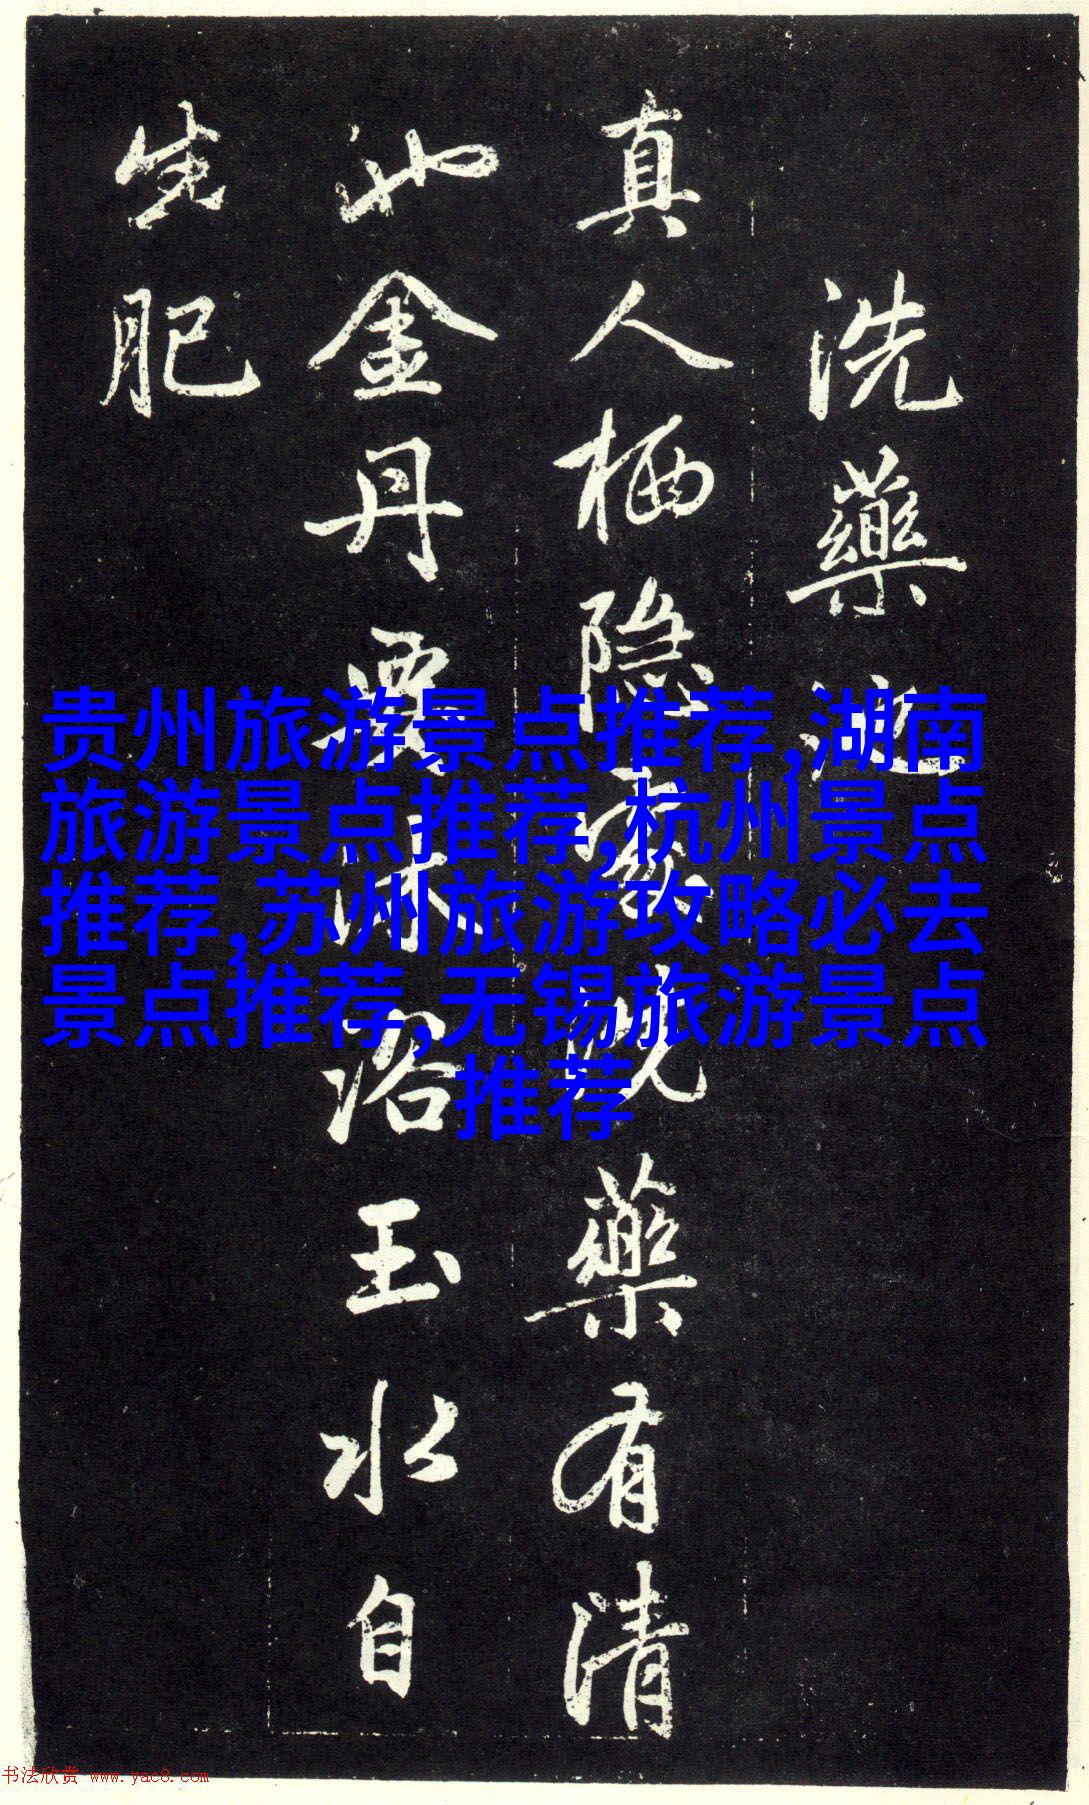 洗藥池
真人栖隐處洗藥有清
池金丹要沐浴玉水自
生肥
贵州旅游景点推荐,湖南
旅游景点推荐,杭州景点
推荐,苏州旅游攻略必去
景点推荐,无锡旅游景点
推荐
书法欣赏 www.yac8.com